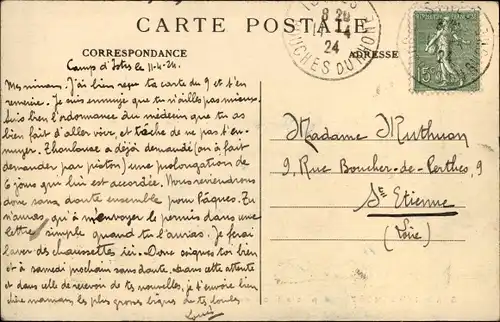 CARTE POSTALE
CORRESPONDANCE
ADRESSE
8 20
14-4
24
BOUCHES DU RHONE
15
Camp d'Istres le 11-4-24.
J'ai bien reçu ta carte du 9 et t'en
remercie. Je suis ennuyé que tu n'ailles pas mieux.
Suis bien l'ordonnance du médecin que tu as
bien fait d'aller voir, et tâche de ne pas t'en-
nuyer. a déjà demandé (on a fait
demander par piston) une prolongation de
6 jours que lui est accordée. Nous reviendrons
donc sans doute ensemble pour Pâques. Tu
n'auras qu'à m'envoyer le permis dans une
lettre simple quand tu l'auras. Je ferai
laver des chaussettes ici. Donc soignes toi bien
et à samedi prochain sans doute. Dans cette attente
et dans celle de recevoir de tes nouvelles, je t'envoie bien
chère maman les plus grosses bises de ton
Louis
Madame Muthuon
9, Rue Boucher-de-Perthes, 9
St Etienne
(Loire)